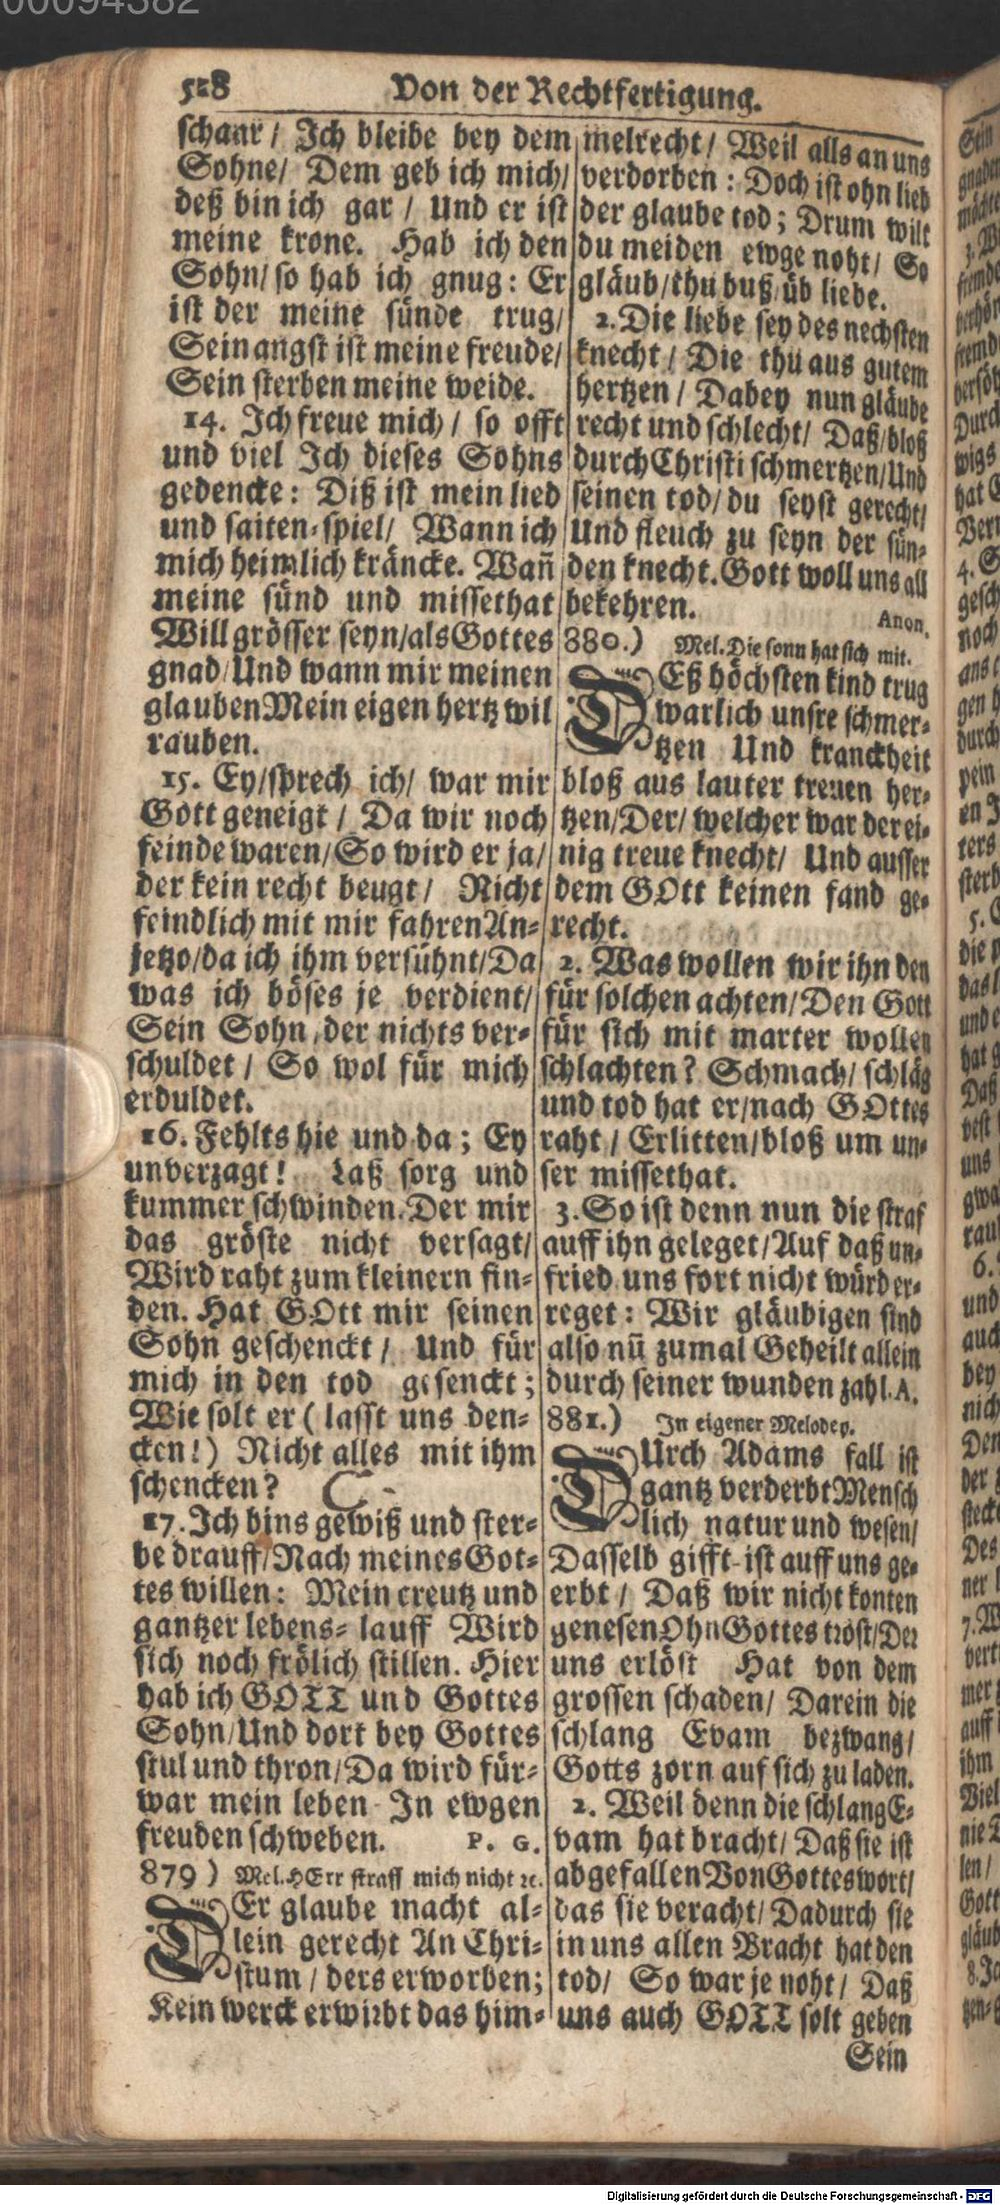 00094382
518 Von der Rechtfertigung.
schaar / Ich bleibe bey dem
Sohne/ Dem geb ich mich/
deß bin ich gar / Und er ist
meine krone. Hab ich den
Sohn/ so hab ich gnug: Er
ist der meine sünde trug/
Sein angst ist meine freude/
Sein sterben meine weide.
14. Ich freue mich / so offt
und viel Ich dieses Sohns
gedencke: Diß ist mein lied
und saiten-spiel/ Wann ich
mich heimlich kräncke. Wañ
meine sünd und missethat
Will grösser seyn/als Gottes
gnad/Und wann mir meinen
glauben Mein eigen hertz wil
rauben.
15. Ey/sprech ich/ war mir
Gott geneigt / Da wir noch
feinde waren/So wird er ja/
der kein recht beugt / Nicht
feindlich mit mir fahren An-
jetzo/da ich ihm versühnt/Da
was ich böses je verdient/
Sein Sohn, der nichts ver-
schuldet / So wol für mich
erduldet.
16. Fehlts hie und da; Ey
unverzagt! Laß sorg und
kummer schwinden. Der mir
das gröste nicht versagt/
Wird raht zum kleinern fin-
den. Hat GOtt mir seinen
Sohn geschenckt / Und für
mich in den tod gesenckt;
Wie solt er (lasst uns den-
cken!) Nicht alles mit ihm
schencken?
17. Ich bins gewiß und ster-
be drauff/Nach meines Got-
tes willen: Mein creutz und
gantzer lebens-lauff Wird
sich noch frölich stillen. Hier
hab ich GOTT und Gottes
Sohn/Und dort bey Gottes
stul und thron/Da wird für-
war mein leben In ewgen
freuden schweben. P. G.
879 ) Mel. HErr straff mich nicht ꝛc.
DEr glaube macht al-
lein gerecht An Chri-
stum / ders erworben;
Kein werck erwirbt das him-
melrecht/ Weil alls an uns
verdorben: Doch ist ohn lieb
der glaube tod; Drum wilt
du meiden ewge noht/ So
gläub/thu buß/üb liebe.
2. Die liebe sey des nechsten
knecht / Die thu aus gutem
hertzen / Dabey nun gläube
recht und schlecht/ Daß/bloß
durch Christi schmertzen/Und
seinen tod/du seyst gerecht/
Und fleuch zu seyn der sün-
den knecht. Gott woll uns all
bekehren. Anon.
880.) Mel. Die sonn hat sich mit.
DEß höchsten kind trug
warlich unsre schmer-
tzen Und kranckheit
bloß aus lauter treuen her-
tzen/Der/ welcher war der ei-
nig treue knecht/ Und ausser
dem GOtt keinen fand ge-
recht.
2. Was wollen wir ihn den
für solchen achten/Den Gott
für sich mit marter wollen
schlachten? Schmach/ schläg
und tod hat er/nach GOttes
raht / Erlitten/bloß um un-
ser missethat.
3. So ist denn nun die straf
auff ihn geleget/Auf daß un-
fried uns fort nicht würd er-
reget: Wir gläubigen sind
also nũ zumal Geheilt allein
durch seiner wunden zahl. A.
881.) In eigener Melodey.
DUrch Adams fall ist
gantz verderbt Mensch
lich natur und wesen/
Dasselb gifft ist auff uns ge-
erbt / Daß wir nicht konten
genesen Ohn Gottes trost/Der
uns erlöst Hat von dem
grossen schaden/ Darein die
schlang Evam bezwang/
Gotts zorn auf sich zu laden.
2. Weil denn die schlang E-
vam hat bracht/ Daß sie ist
abgefallen Von Gottes wort/
das sie veracht/ Dadurch sie
in uns allen Bracht hat den
tod/ So war je noht/ Daß
uns auch GOTT solt geben
Sein
Digitalisierung gefördert durch die Deutsche Forschungsgemeinschaft - DFG